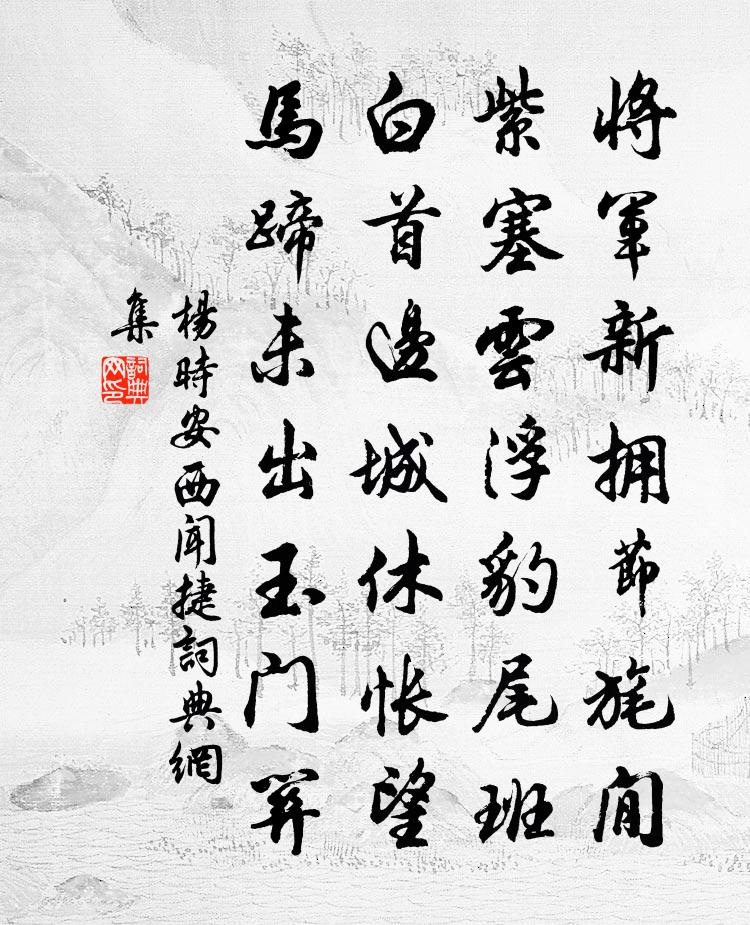 将軍新拥節旄閒
紫塞雲浮豹尾班
白首邊城休悵望
馬蹄未出玉门関
楊時安西聞捷詞典網
集
詞典网印